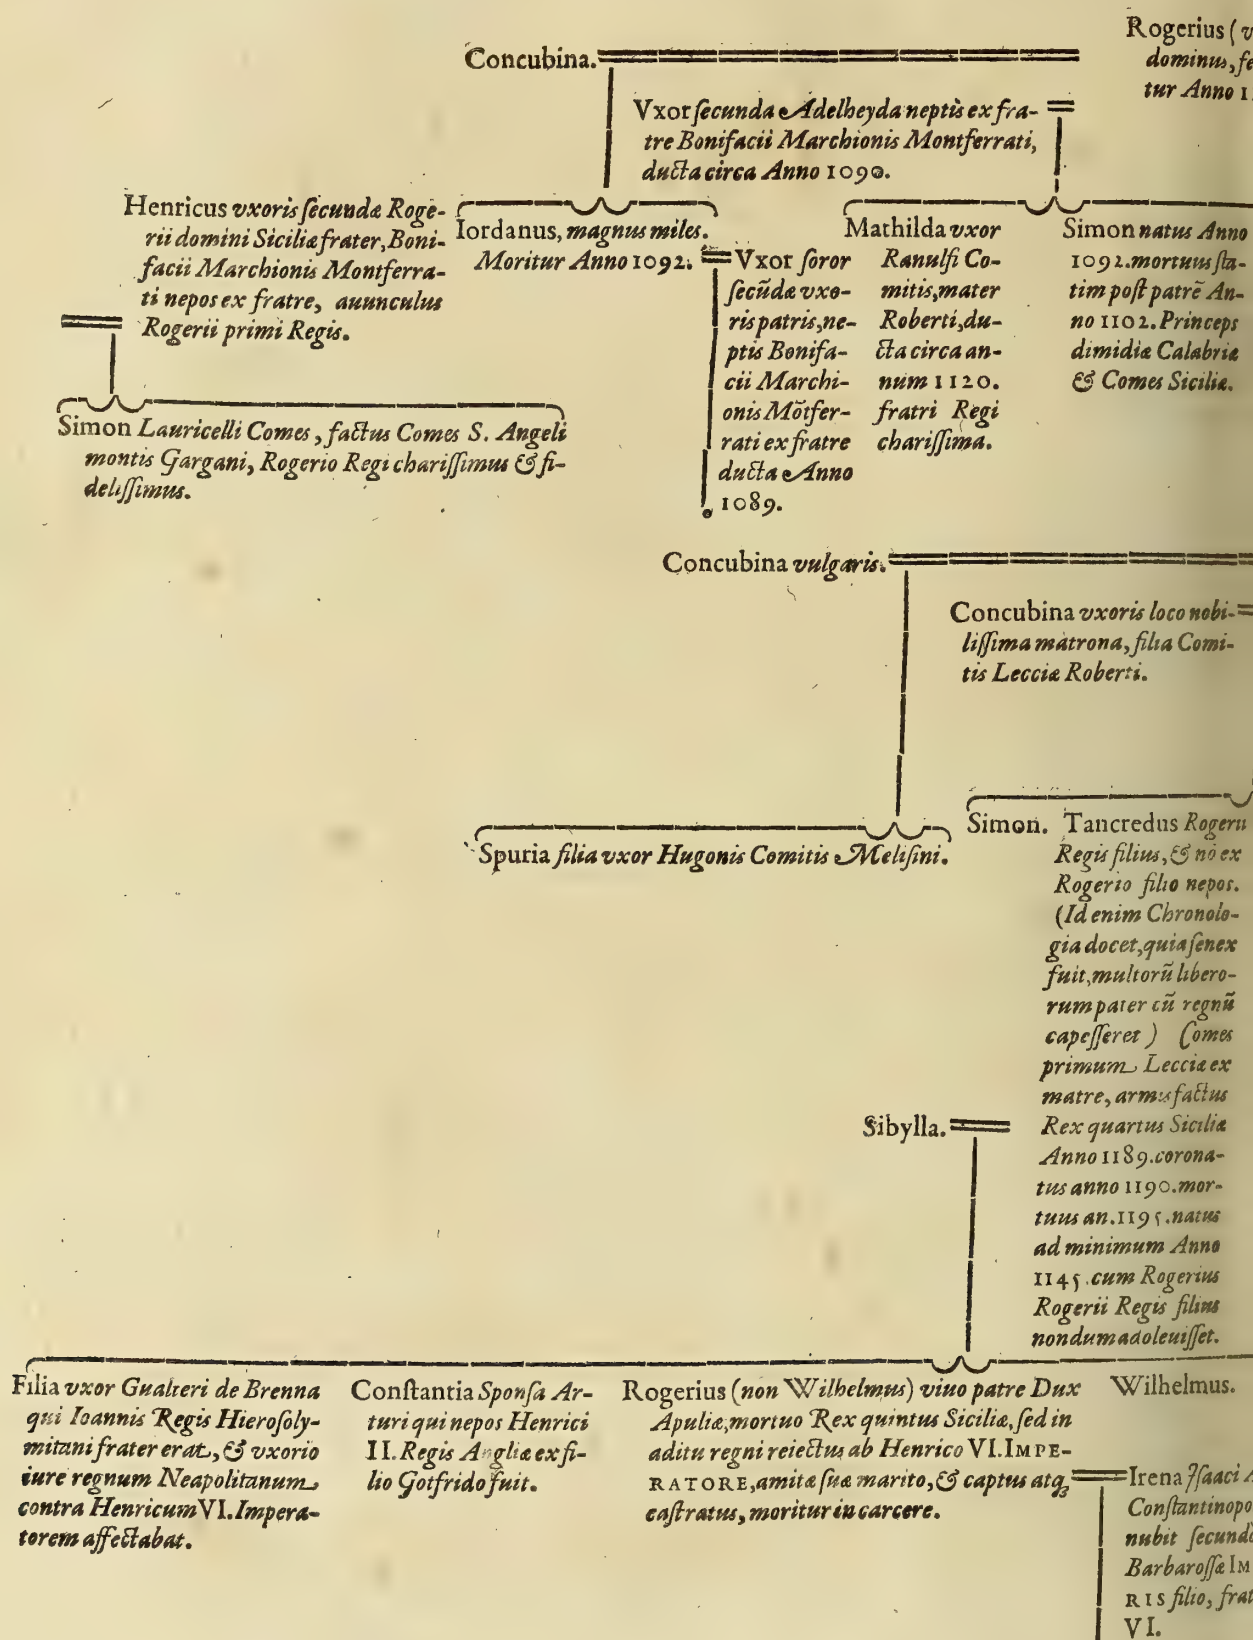 Rogerius (v
dominus, fe
tur Anno 1
Concubina.
Vxor ſecunda Adelheyda neptis ex fra-
tre Bonifacii Marchionis Montferrati,
ducta circa Anno 1090.
Henricus vxoris ſecundæ Roge-
rii domini Siciliæ frater, Boni-
facii Marchionis Montferra-
ti nepos ex fratre, auunculus
Rogerii primi Regis.
Iordanus, magnus miles.
Moritur Anno 1092.
Vxor ſoror
ſecũdæ vxo-
ris patris, ne-
ptis Bonifa-
cii Marchi-
onis Mõtfer-
rati ex fratre
ducta Anno
1089.
Mathilda vxor
Ranulfi Co-
mitis, mater
Roberti, du-
cta circa an-
num 1120.
fratri Regi
chariſſima.
Simon natus Anno
1092. mortuus ſta-
tim poſt patrẽ An-
no 1102. Princeps
dimidiæ Calabriæ
& Comes Siciliæ.
Simon Lauricelli Comes, factus Comes S. Angeli
montis Gargani, Rogerio Regi chariſſimus & fi-
deliſſimus.
Concubina vulgaris.
Concubina vxoris loco nobi-
liſſima matrona, filia Comi-
tis Lecciæ Roberti.
Spuria filia vxor Hugonis Comitis Meliſini.
Simon.
Tancredus Rogerii
Regis filius, & nõ ex
Rogerio filio nepos.
(Id enim Chronolo-
gia docet, quia ſenex
fuit, multorũ libero-
rum pater cũ regnũ
capeſſeret ) Comes
primum Lecciæ ex
matre, armis factus
Rex quartus Siciliæ
Anno 1189. corona-
tus anno 1190. mor-
tuus an. 1195. natus
ad minimum Anno
1145. cum Rogerius
Rogerii Regis filius
nondum adoleuiſſet.
Sibylla.
Filia vxor Gualteri de Brenna
qui Ioannis Regis Hieroſoly-
mitani frater erat, & vxorio
iure regnum Neapolitanum
contra Henricum VI. Impera-
torem affectabat.
Conſtantia Sponſa Ar-
turi qui nepos Henrici
II. Regis Angliæ ex fi-
lio Gotfrido fuit.
Rogerius (non Wilhelmus) viuo patre Dux
Apuliæ, mortuo Rex quintus Siciliæ, ſed in
aditu regni reiectus ab Henrico VI. IMPE-
RATORE, amitæ ſuæ marito, & captus atq;
caſtratus, moritur in carcere.
Wilhelmus.
Irena Iſaaci A
Conſtantinopo
nubit ſecundò
Barbaroſſæ IM
RIS filio, frat
VI.